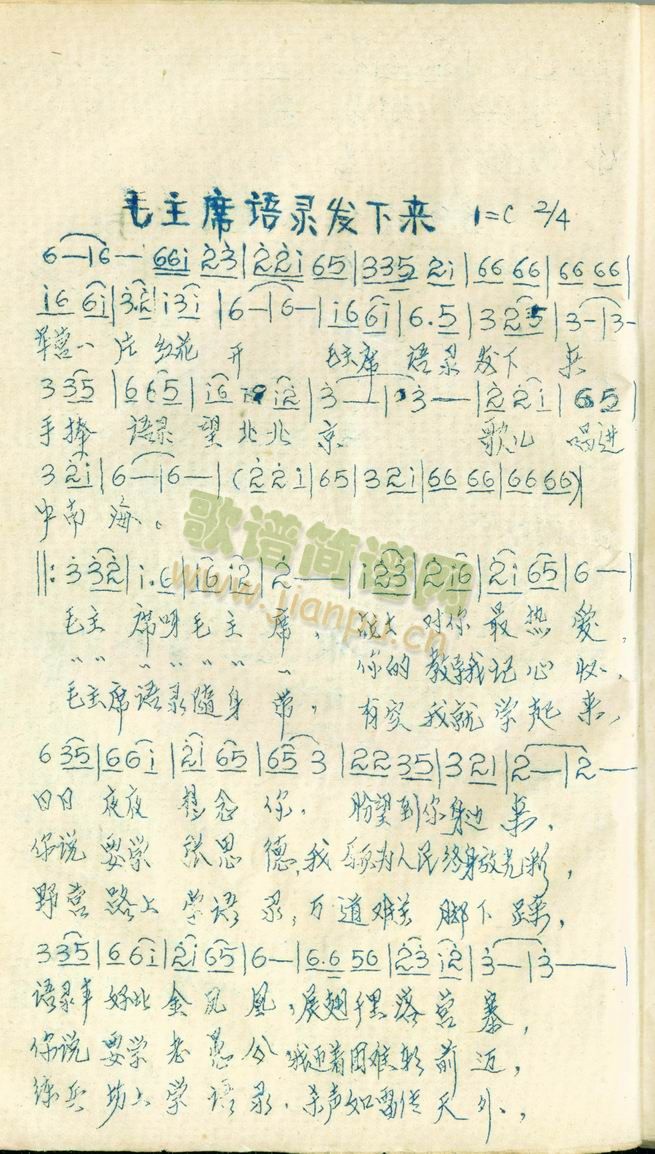 毛主席语录发下来 1=C 2/4
6—|6— 66i 23|22i 65|335 2i|66 66|66 66|
i6 6i|32 i3i|6—|6—|i6 6i|6.5|3 25|3—|3—
军营一片红花开 毛主席语录发下来
3 35|6 65|i6 i2|3—|3—|22i|65|
手捧语录望北京 歌儿唱进
3 2i|6—|6—|(22i|65|3 2i|66 66|66 66)|
中南海。
歌谱简谱网
www.jianpu.cn
‖:3 32|i.6|i6 i2|2——|i33|2i6|2i 65|6—|
毛主席呀毛主席, 对你最热爱,
〃〃〃〃〃〃 你的教导我记心怀,
毛主席语录随身带, 有空我就学起来,
6 35|66i|2i 65|65 3|22 35|3 21|2—|2—
日日夜夜想念你, 盼望到你身边来,
你说要学张思德,我要为人民终身放光彩,
野营路上学语录,万道难关脚下踩,
3 35|66i|2i 65|6—|6.6 56|23 i2|3—|3——|
语录本好比金凤凰,展翅落营寨,
你说要学老愚公,我迎着困难朝前迈,
练兵场上学语录,杀声如雷传天外,